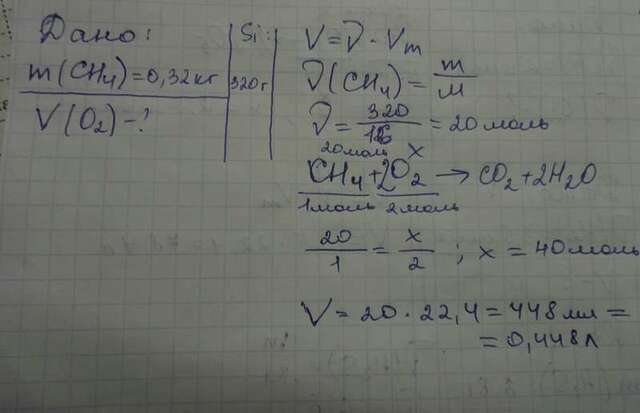 Дано:
m(CH4)=0,32кг
V(O2)-?
Si:
320г
V=ν·Vm
ν(CH4)=m/M
ν=320/16=20моль
20моль x
CH4+2O2→CO2+2H2O
1моль 2моль
20/1=x/2; x=40моль
V=20·22,4=448мл=
=0,448л